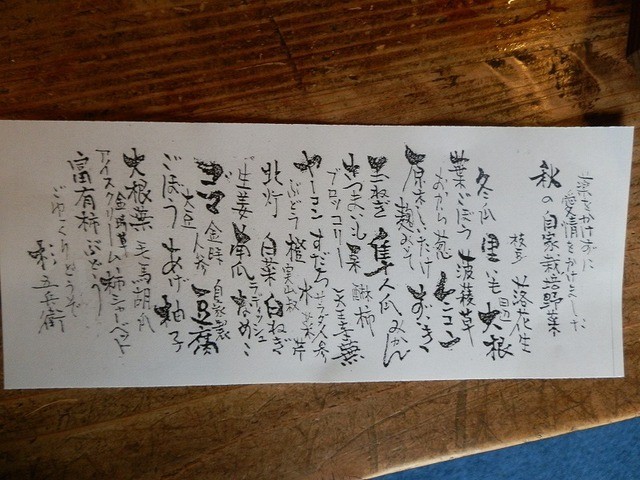 薬をかけずに
愛情をかけました
秋の自家栽培野菜
枝豆 落花生
冬瓜 里いも 田辺大根
葉ごぼう 菠薐草
おから 葱 レンコン
原木しいたけ
黒ねぎ 隼人瓜 みかん
さつまいも 栗 酢 柿
ブロッコリー
ヤーコン すだち サラダ人参
ぶどう 橙 実山椒 水菜 芹
北灯 白菜 白ねぎ
ラディッシュ
生姜 南瓜 なめこ
ゴマ 金時人参 自家製豆腐
大豆
ごぼう あげ 柚子
大根葉 毛馬胡瓜
アイスクリーム 柿シャーベット
富有柿 ぶどう
ごゆっくりどうぞ
五兵衛